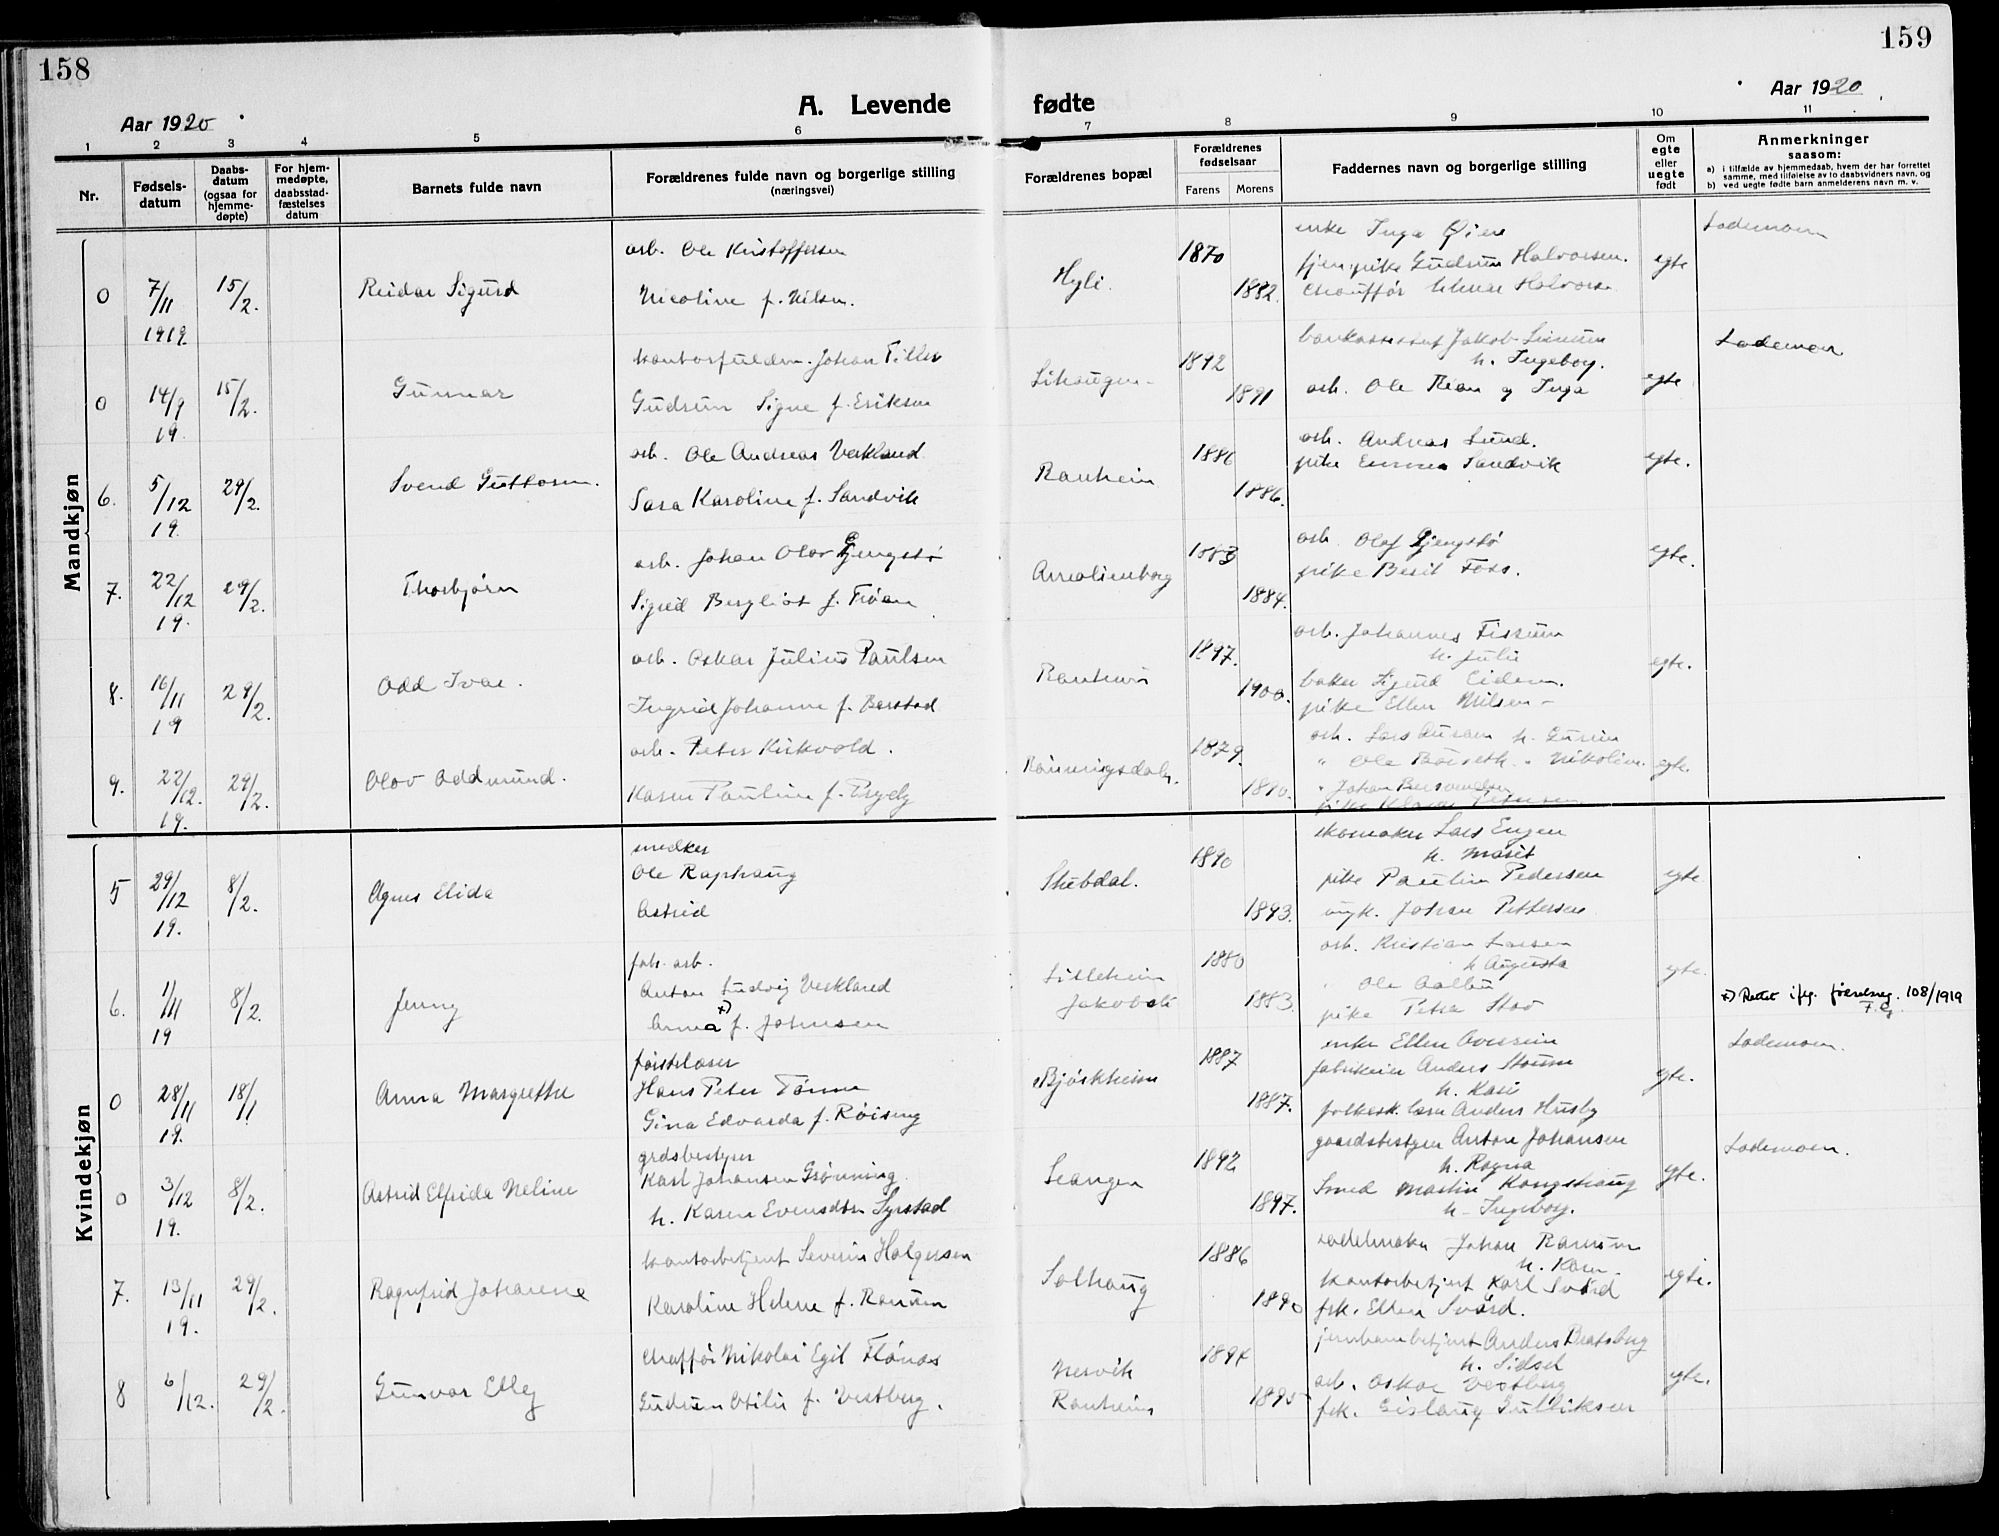 158
159
Aar 1920
A. Levende fødte
Aar 1920
1 2 3 4 5 6 7 8 9 10 11
Nr.
Fødsels-
datum
Daabs-
datum
(ogsaa for
hjemme-
døpte)
For hjem-
medøpte,
daabsstad-
fæstelses
datum
Barnets fulde navn
Forældrenes fulde navn og borgerlige stilling
(næringsvei)
Forældrenes bopæl
Forældrenes
fødselsaar
Farens Morens
Faddernes navn og borgerlige stilling
Om
egte
eller
uegte
født
Anmerkninger
saasom:
a) i tilfælde av hjemmedaab, hvem der har forrettet
samme, med tilføielse av to daabsvidners navn, og
b) ved uegte fødte barn anmelderens navn m. v.
Mandkjøn
0 7/11 1919. 15/2. Reidar Sigurd
arb. Ole Kristoffersen
Nicoline f. Nilsen.
Hyli. 1870 1882.
enke Inga Øien
tjenpike Gudrun Halvorsen.
Chauffør Halvorsen
egte
Lademoen
0 14/9 19. 15/2. Gunnar
kontorfuldm. Johan Tiller
Gudrun Signe f. Eriksen
1892 1891
Jakob
h. Ingeborg.
arb. Ole Rian og Inga
egte
Lademoen
6. 5/12 19. 29/2. Svend Guttorm.
arb. Ole Andreas Verkland
Sara Karoline f. Sandvik
Ranheim 1886 1886.
arb. Andreas Lund.
pike Emma Sandvik
egte.
7. 22/12 19. 29/2. Thorbjørn
arb. Johan Olav Gjengstø
Sigrid Bergliot f. Frøen
Amalienborg 1883 1884.
arb. Olaf Gjengstø
pike Berit Foss.
egte.
8. 16/11 19 29/2. Odd Ivar.
arb. Oskar Julius Paulsen
Ingrid Johanne f. Barstad
Ranheim 1897. 1900.
arb. Johannes Fissum
h. Julie
baker Sigurd Eidem.
pike Ellen Nilsen
egte.
9. 22/12. 19. 29/2. Olov Oddmund.
arb. Peter Kirkvold.
Karen Pauline f.
1879. 1890.
arb. Lars h. Guri
" Ole " Nikoline.
" Johan
pike Klara Petersen
egte.
Kvindekjøn
5 29/12 19. 8/2. Agnes Elida
snedker
Ole Raphaug
Astrid
Stubdal. 1890 1893.
skomaker Lars Engen
h. Marit
pike Pauline Pedersen
ungk. Johan Pettersen
egte
6. 1/11 19 8/2. Jenny
fab. arb.
Anton Ludvig Verkland
Anna x) f. Johnsen
Lilleheim
Jakobsli 1880 1883.
arb. Kristian Larsen
h Augusta
" Ole Aalbu
pike Petra Stav
egte.
x) Rettet ifg. fødselsreg. 108/1919
0 28/11 19. 18/1 Anna Margrethe
forstelærer
Hans Peter Tønne
Gina Edvarda f. Røising
Bjørkheim 1887 1887.
enke Ellen Overein
fabrikeier Anders Stoum
h. Kari
folkesk. lærer Anders Husby
egte.
Lademoen.
0 3/12 19. 8/2. Astrid Elfrida Neline
grdsbestyrer
Karl Johansen Grønning
h. Karen Evensdtr. Syrstad
Leangen 1892 1897.
gaardsbestyrer Anton Johansen
h. Ragna
Smed Martin Kongshaug
h. Ingeborg.
egte.
Lademoen.
7. 13/11 19. 29/2. Ragnfrid Johanne
kontorbetjent Severin Holgersen
Karoline Helene f. Ranum
Solhaug 1886 1890
sadelmaker Johan Ranum
h. Karen.
kontorbetjent Karl Svärd
frk. Ellen Svärd.
egte.
8 6/12. 29/2. Gunvor Elly
Chaffør Nikolai Egil Flønes
Gudrun Otilie f. Vestberg.
Nervik
Ranheim 1894 1895
jernbanebetjent Anders Bratsberg
h. Sidsel
arb. Oskar Vestberg
frk. Gislaug Gulliksen
egte.